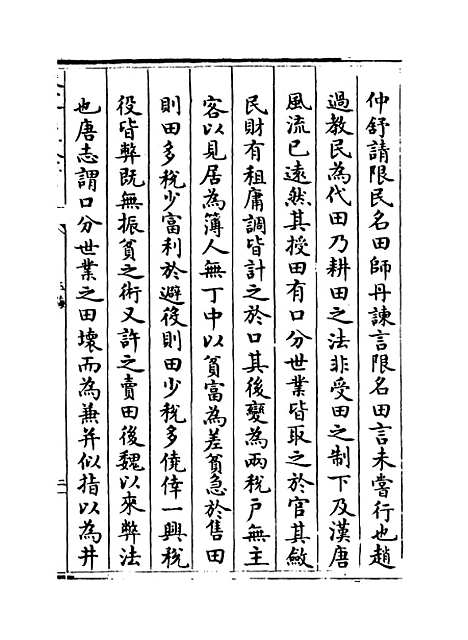 仲舒請限民名田師丹諫言限名田言未嘗行也趙
過教民為代田乃耕田之法非受田之制下及漢唐
風流已遠然其授田有口分世業皆取之於官其斂
民財有租庸調皆計之於口其後變為兩稅戶無主
客以見居為簿人無丁中以貧富為差貧急於售田
則田多稅少富利於避役則田少稅多僥倖一興稅
役皆弊既無振貧之術又許之賣田後魏以來弊法
也唐志謂口分世業之田壞而為兼并似指以為井